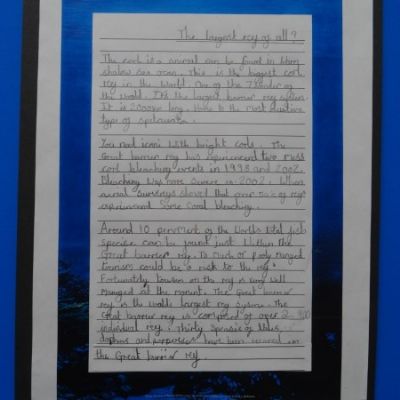 The largest rey of all?
The corl is a animal can be found in
shalow sea ocan. This is the biggest corl
rey in the World. One of the 7 Wonder of
the World. It's the largest barrier rey system
It is 2000km long. Home to the most
type of
You need icon With bright corls. The
Great barrier rey has experienced two mass
corl bleaching events in 1998 and 2002.
Bleaching Was more severe in 2002. When
aerial surveys showed that over 50% of reys
experienced some coral bleaching.
Around 10 percent of the World's total fish
species can be found just Within the
Great barrier rey. To much or poorly managed
tourism could be a risk to the rey.
Fortunately tourism on the rey is very well
managed at the moment. The great barrier
rey is the worlds largest rey system. The
Great barrier rey is composed of over 2,900
individual rey. Thirty species of Whales,
dolphins and porpoises have been recored in
the Great barrier rey.